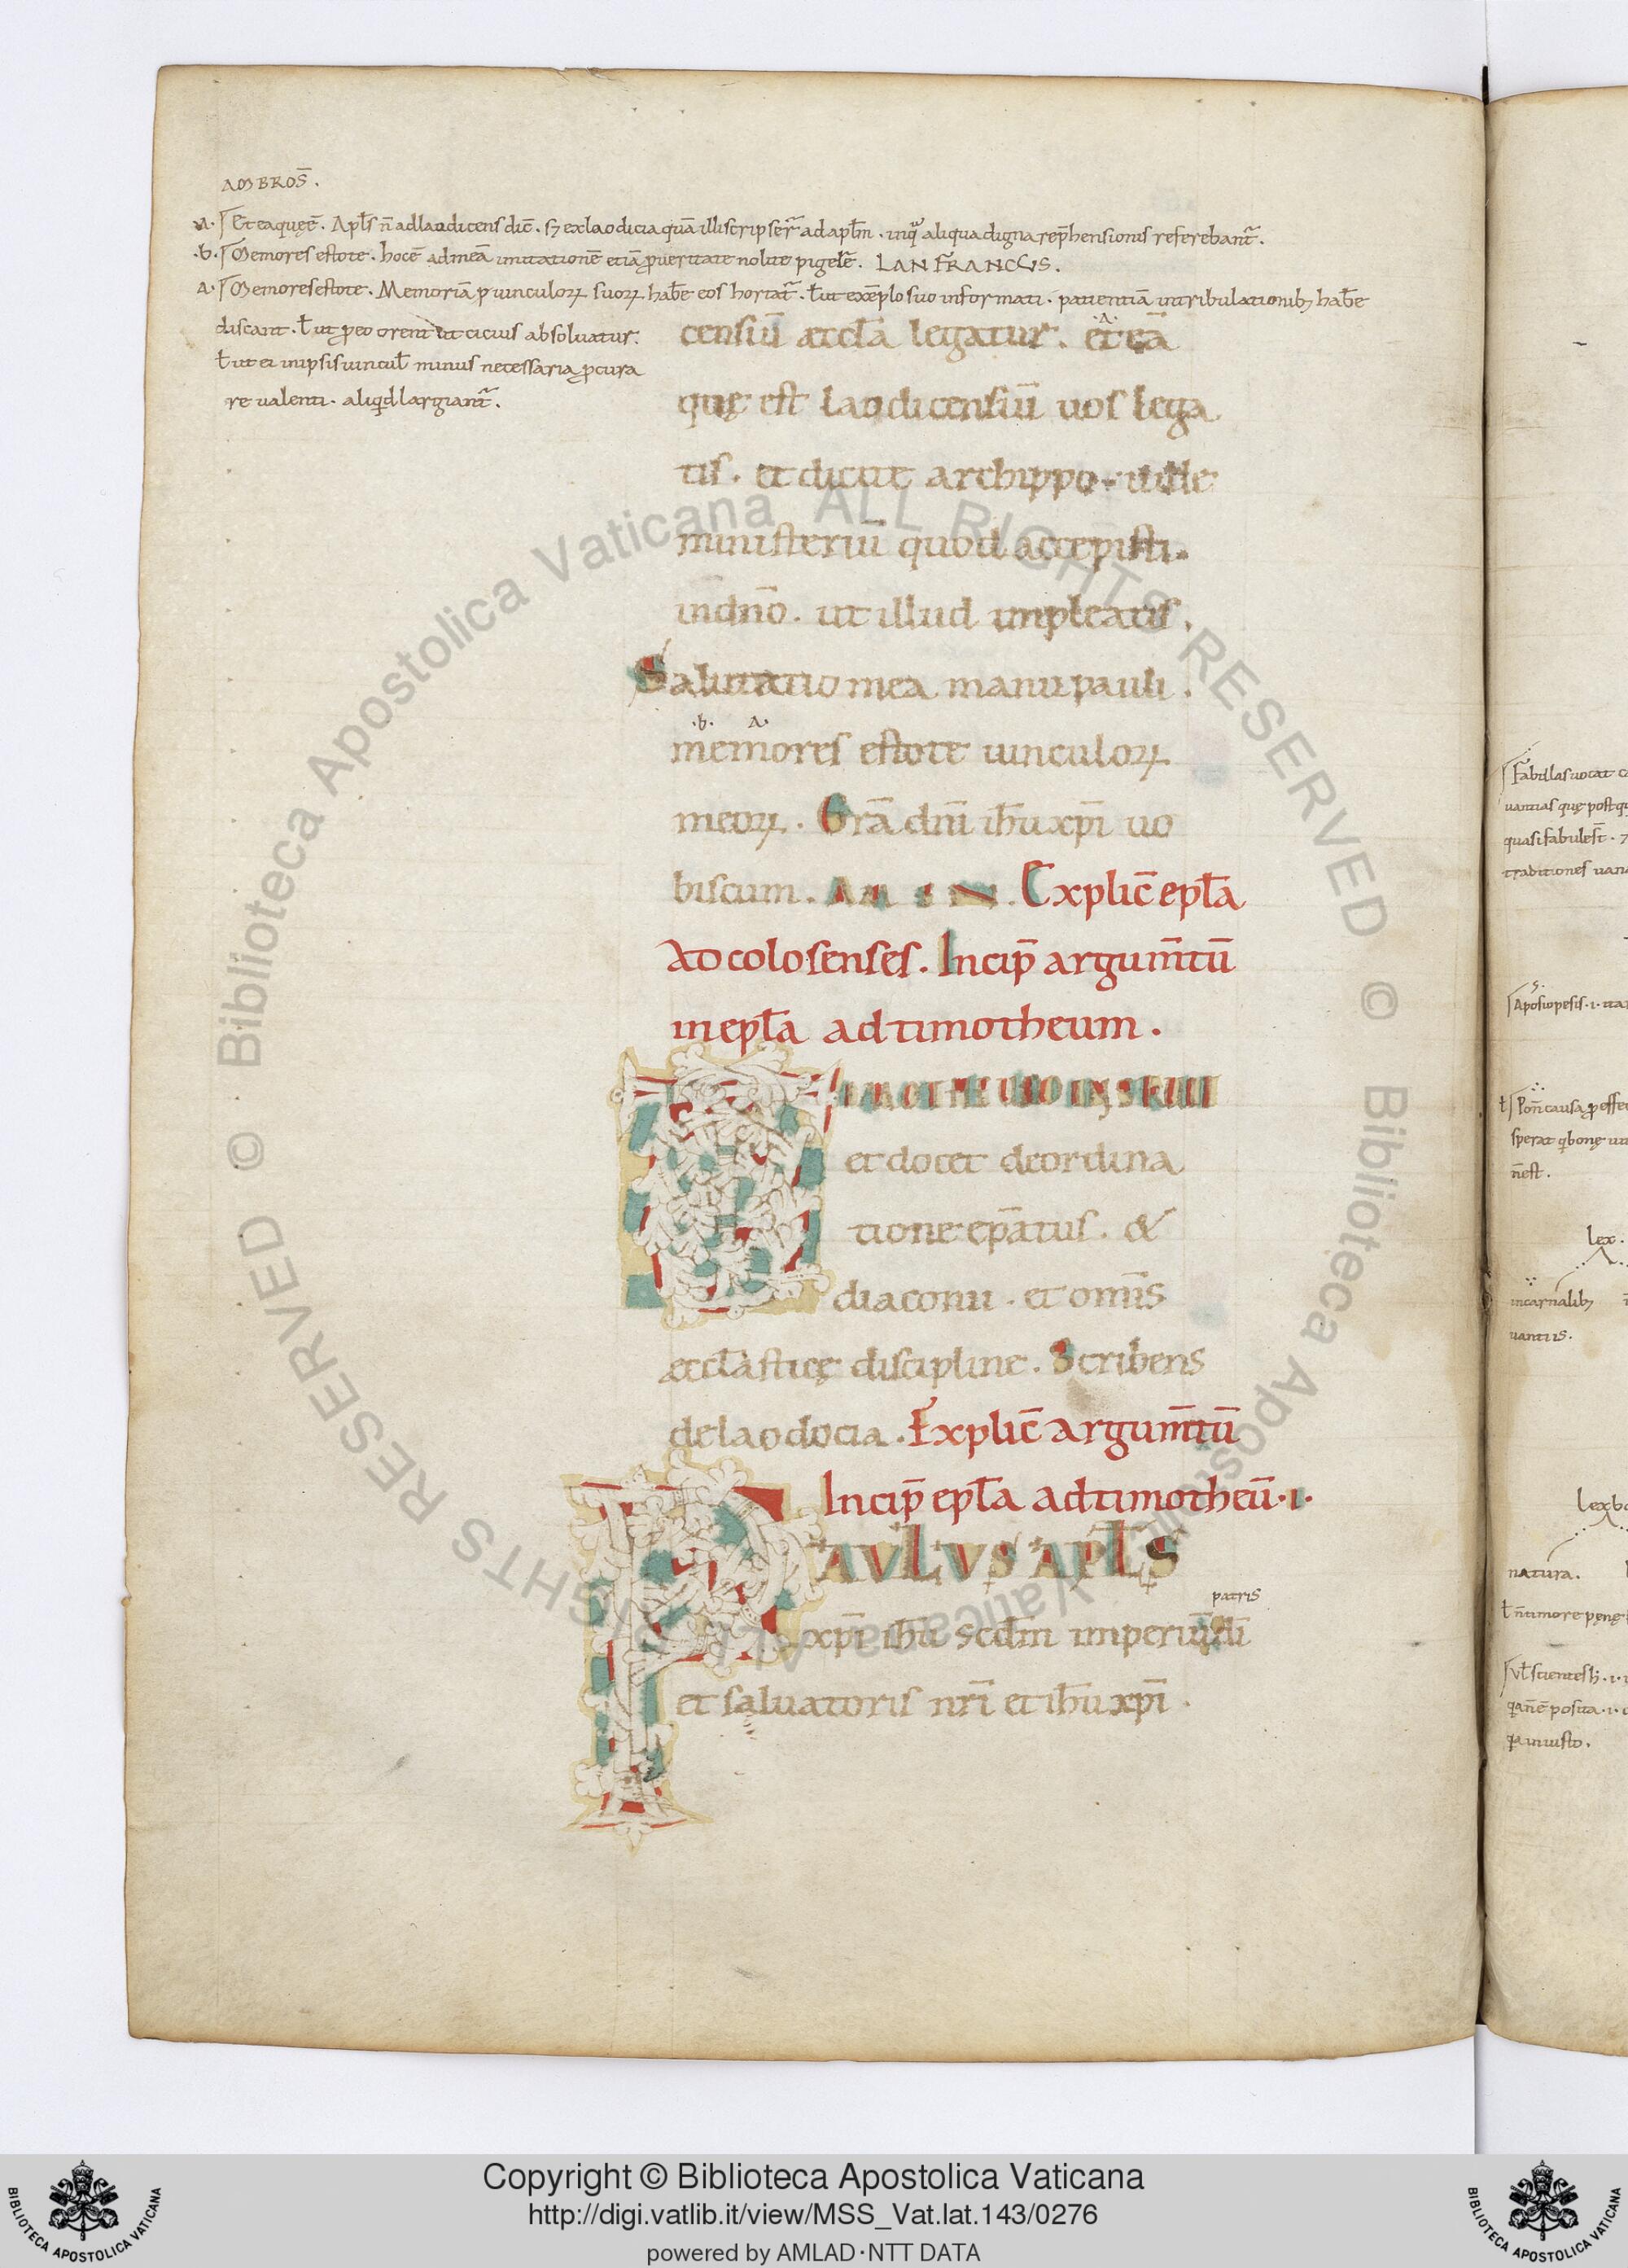 AMBROS̄.
.a. Et ea quę ē. Apl̄s n̄ ad laodicens dic̄. sȝ ex laodicia quā illi scripser̄ ad apl̄m. in q aliqua digna rep̄hensionis referebant̄.
.b. Memores estote. hoc ē ad meā imitationē etiā ꝓ ueritate nolite pigele. LANFRANCUS.
a. Memores estote. Memoriā ꝓ uinculoꝝ suoꝝ hab̄e eos hortat̄. ł ut exēplo suo informati. patientiā in tribulationibꝫ hab̄e
discant. ł ut ꝓ eo orent ut cicius absoluatur.
ł ut ei in ipsis uincul̄ minus necessaria ꝓcura
re ualenti. aliqd largiant̄.
censiū æccl̄a legatur. .A. et eā
quę est laodicensiū uos lega
tis. et dicite archippo. uide
ministeriū quod accepisti.
in dn̄o. ut illud impleatis.
Salutatio mea manu pauli.
.b. .A.
memores estote uinculoꝝ
meoꝝ. Grā dn̄i ih̄u xp̄i uo
biscum. AMEN. Explic̄ epl̄a
Ad colosenses. Incip̄ argum̄tū
in epl̄a ad timotheum.
TIMOTHEUM INSTRUIT
et docet de ordina
tione ep̄atus. &
diaconii. et om̄is
æccl̄asticę discipline. Scribens
de laodocia. Explic̄ argum̄tū
Incip̄ epl̄a ad timotheū .I.
PAULUS APL̄S
patris
xp̄i ih̄u scdm imperiū di
et saluatoris nr̄i et ih̄u xp̄i.
Fabulas uocat
uanitas quę post
quasi fabulest̄.
traditiones uana
Aposiopesis .i. ita
ł Pon̄ causa ꝓ effe
sperat
n̄ est.
lex.
in carnalibꝫ
uantiis.
lex
natura.
ł n̄ timore penę
Vł scientes
posita .i.
iniusto.
ALL RIGHTS RESERVED © Biblioteca Apostolica Vaticana
ALL RIGHTS RESERVED © Biblioteca Apostolica Vaticana
Copyright © Biblioteca Apostolica Vaticana
http://digi.vatlib.it/view/MSS_Vat.lat.143/0276
powered by AMLAD·NTT DATA
BIBLIOTECA APOSTOLICA VATICANA
BIBLIOTECA APOSTOLICA VATICANA